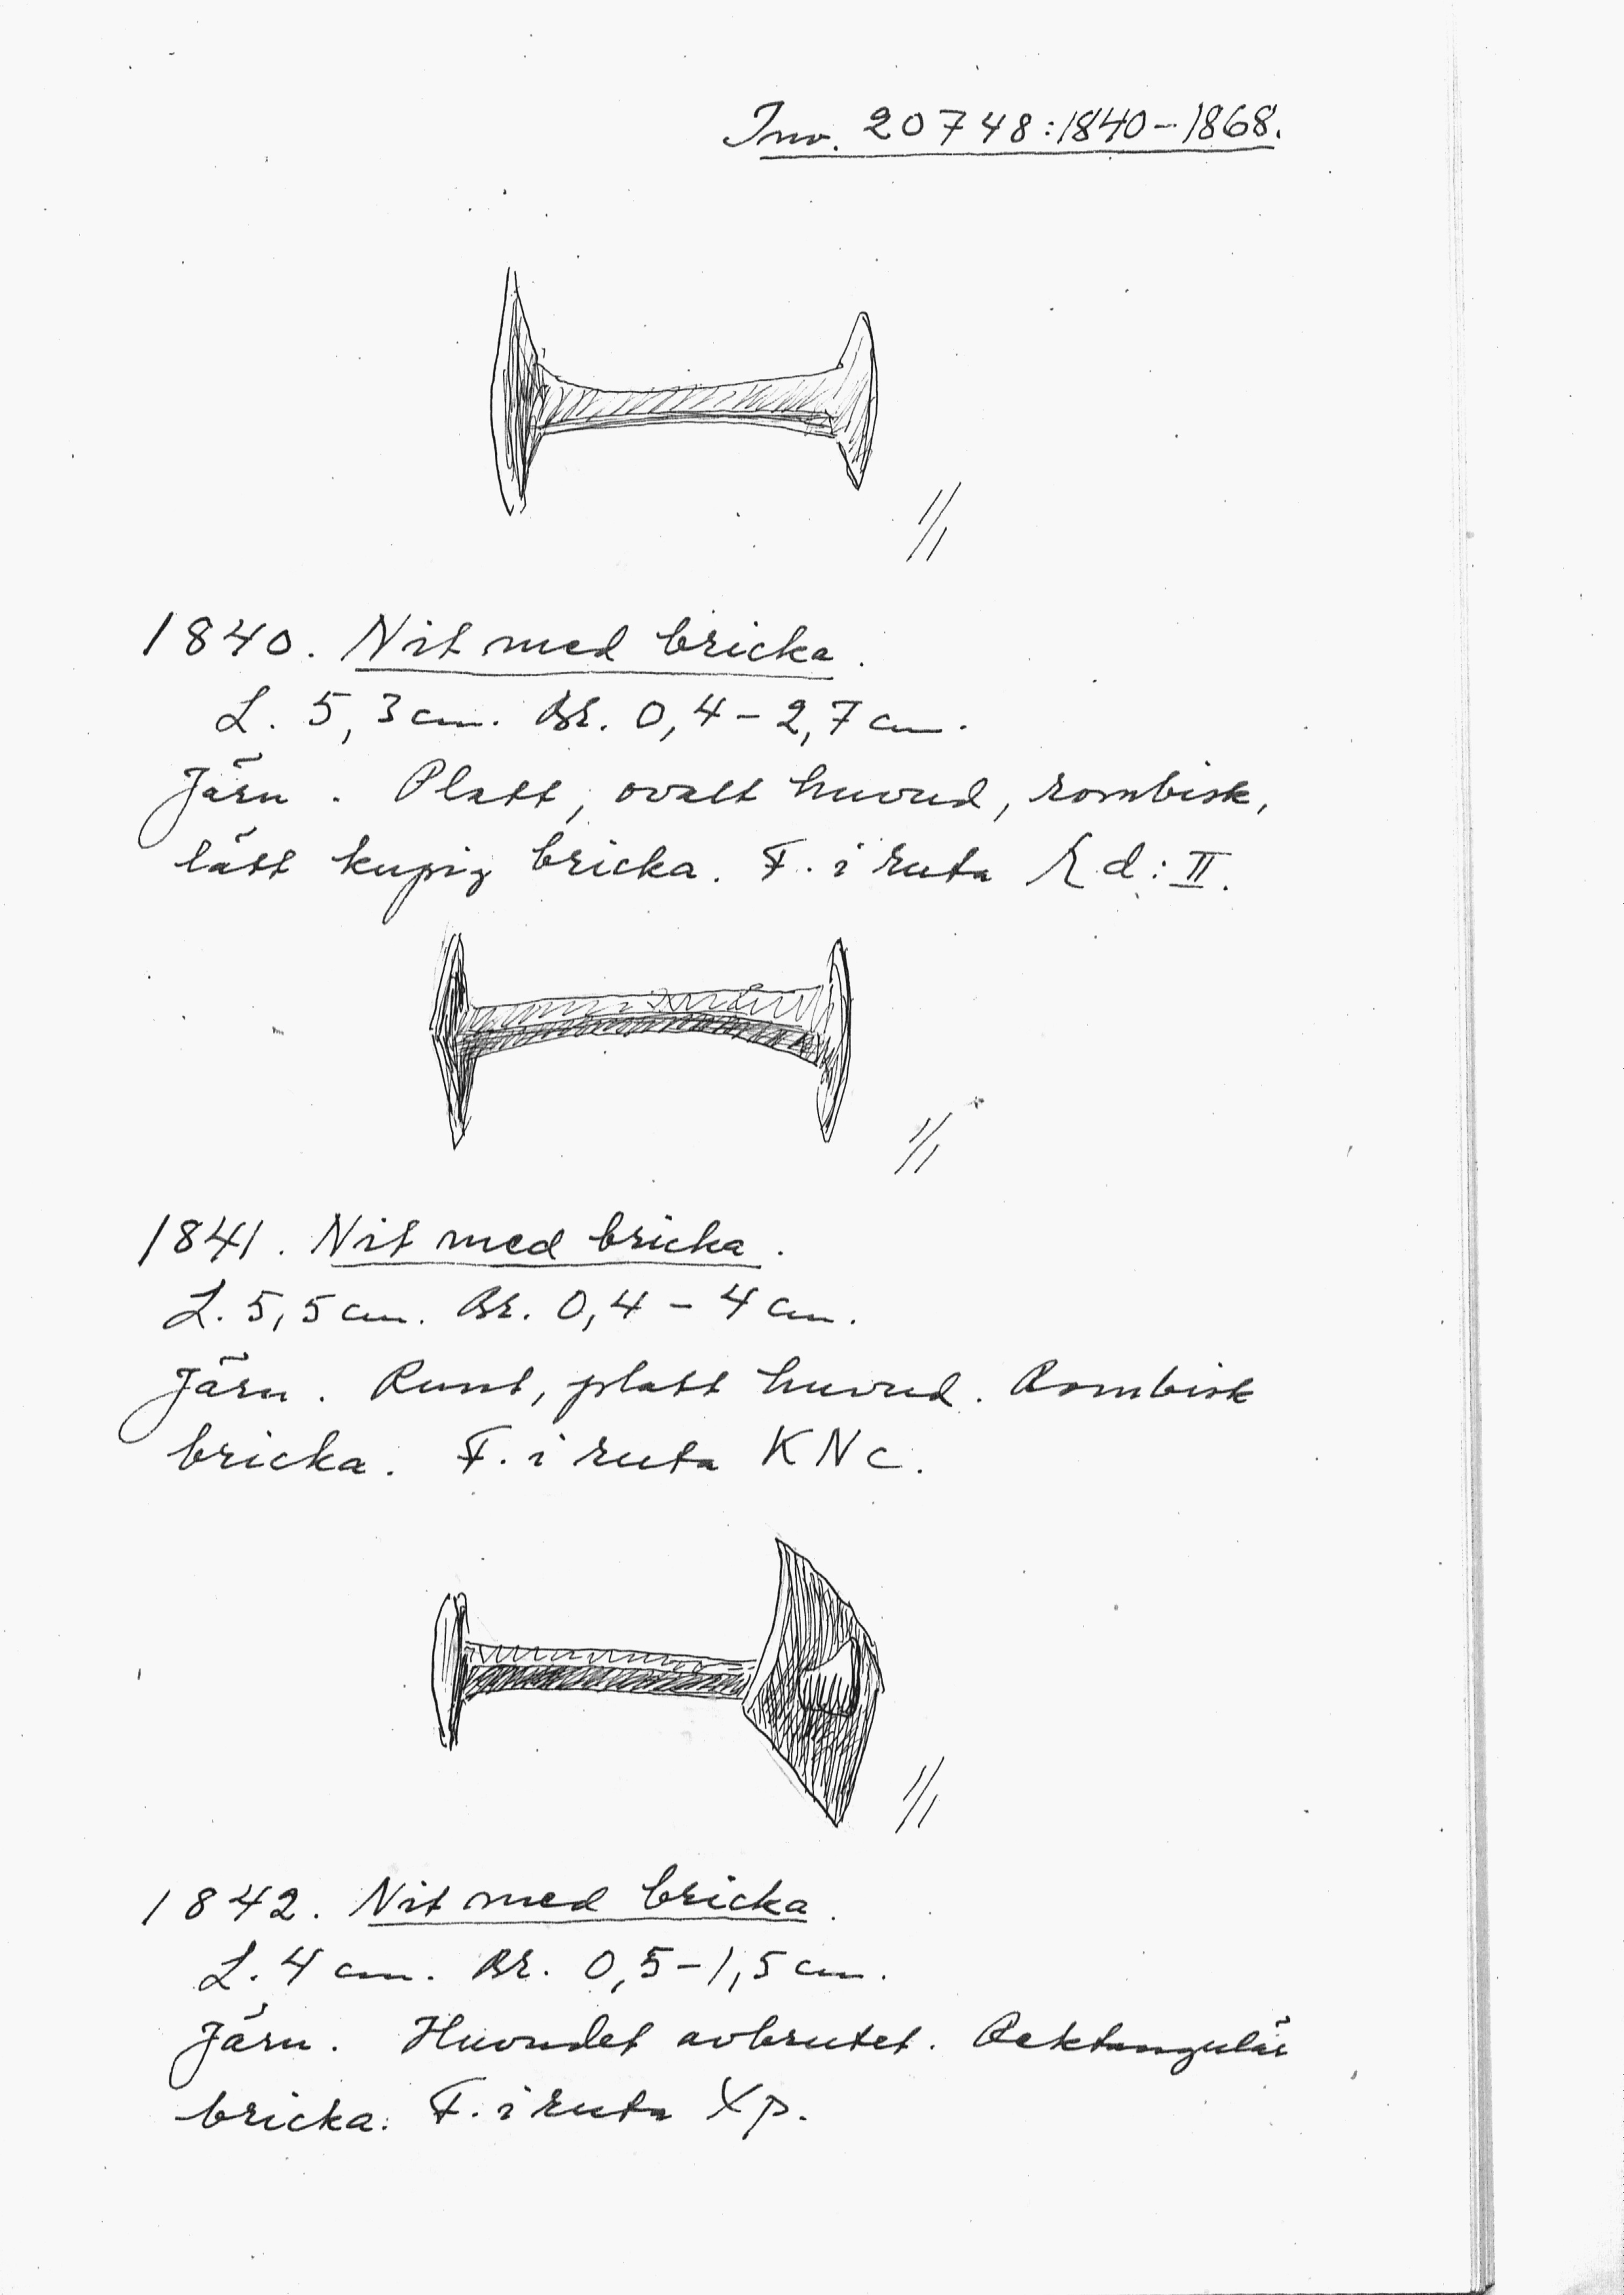 Inv. 20748:1840-1868.
1/1
1840. Nit med bricka.
L. 5,3 cm. Br. 0,4-2,7 cm.
Järn. Platt, ovalt huvud, rombisk,
lätt kupig bricka. F. i ruta d:II.
1/1
1841. Nit med bricka.
L. 5,5 cm. Br. 0,4-4 cm.
Järn. Runt, platt huvud. Rombisk
bricka. F. i ruta KNc.
1/1
1842. Nit med bricka.
L. 4 cm. Br. 0,5-1,5 cm.
Järn. Huvudet avbrutet. Rektangulär
bricka. F. i ruta Xp.